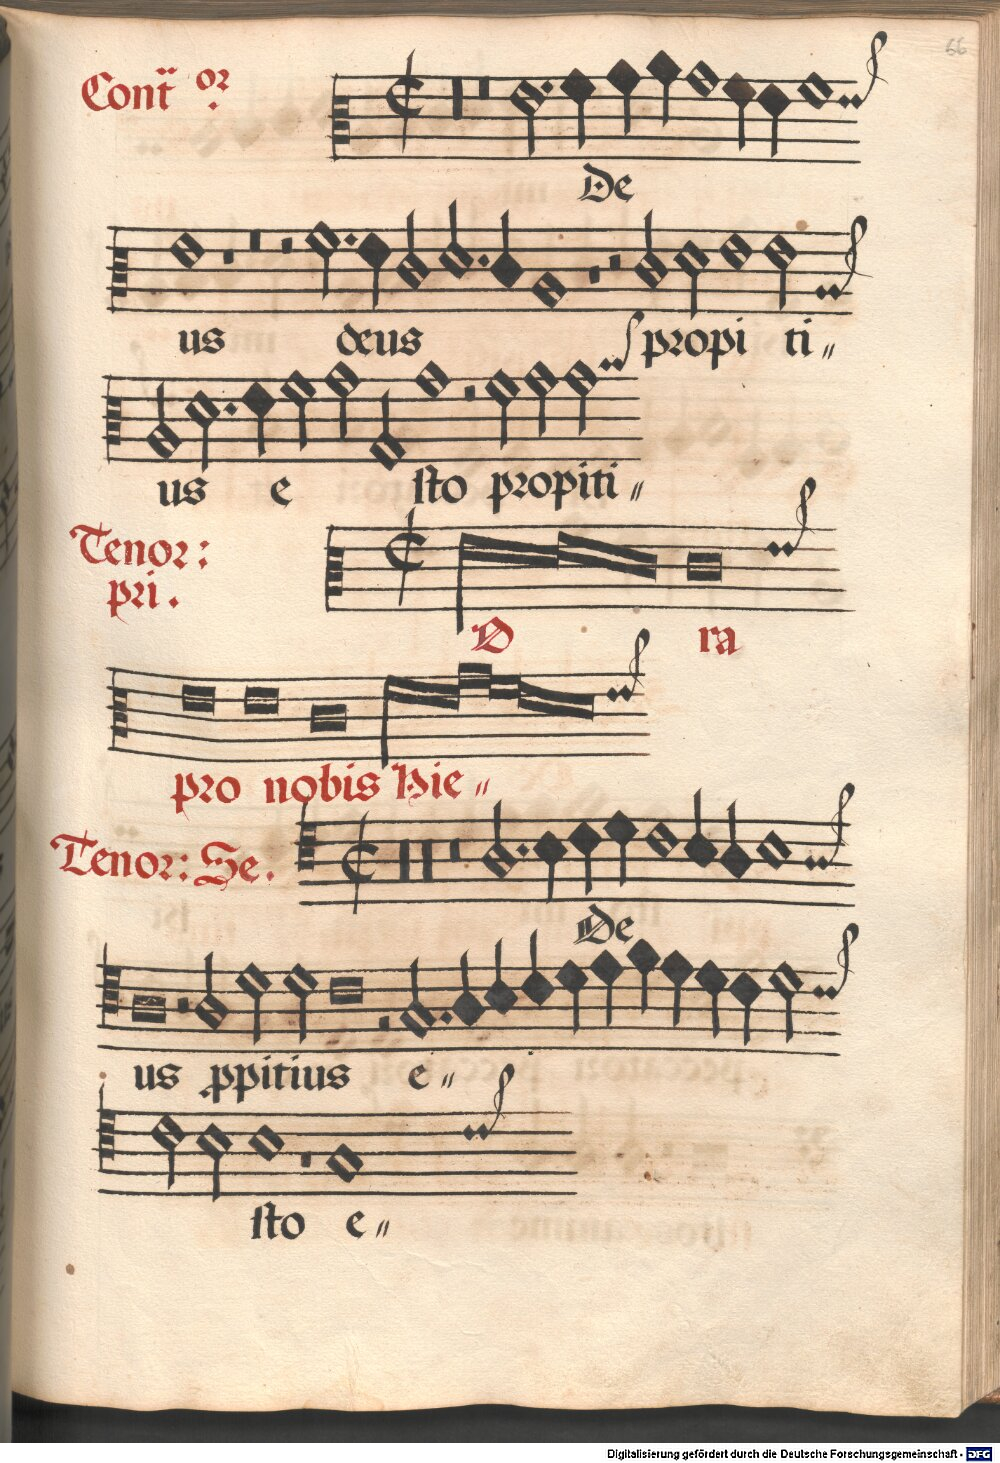 66
Contr̄ or.
De
us deus propi ti〃
us e sto propiti〃
Tenor:
pri.
O ra
pro nobis Hie〃
Tenor: Se.
De
us ꝓpitius e〃
sto e〃
Digitalisierung gefördert durch die Deutsche Forschungsgemeinschaft - DFG